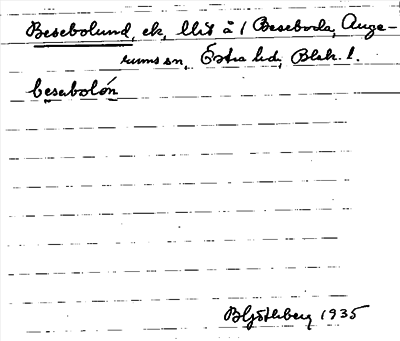 Besebolund, ek, Utst å 1 Beseboda, Auge-
rums sn, Östra hd, Blek. l.
besabolón
B Hjöthberg 1935